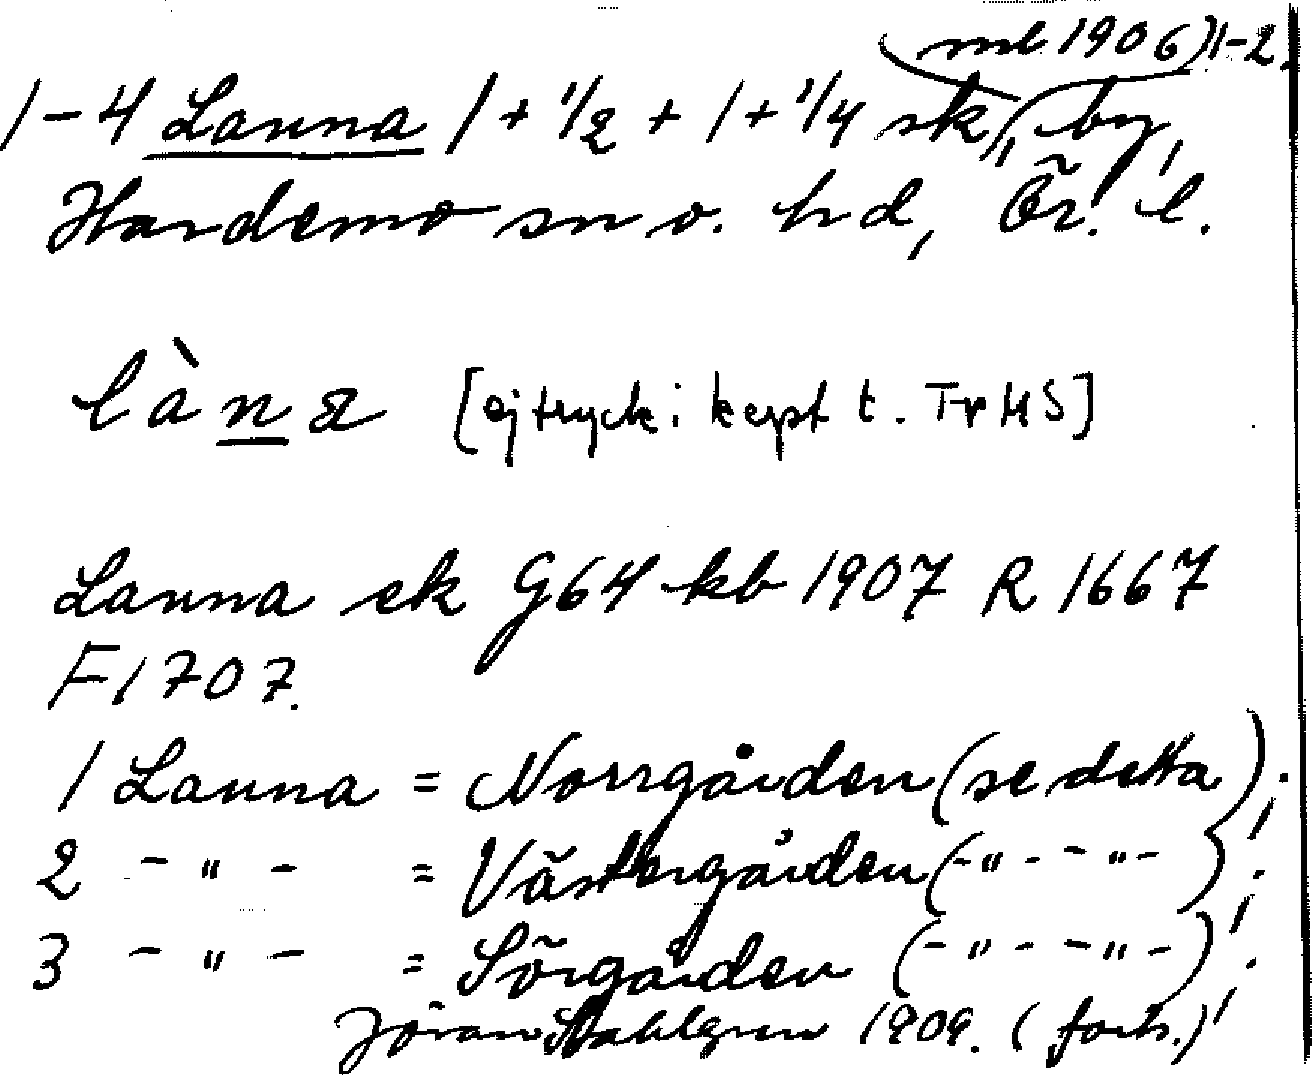 (ml 1906) 1-2.
1-4 Lanna 1 + 1/2 + 1 + 1/4 sk, by,
Hardemo sn o. hd, Ör. l.
làna [ej tryck; kept t. Tr HS]
Lanna ek G64 kb 1907 R 1667
F 1707.
1 Lanna = Norrgården (se detta);
2 - " - = Västergården (- " - - " -);
3 - " - = Sörgården (- " - - " -);
Jöran Sahlgren 1909. (forts.)